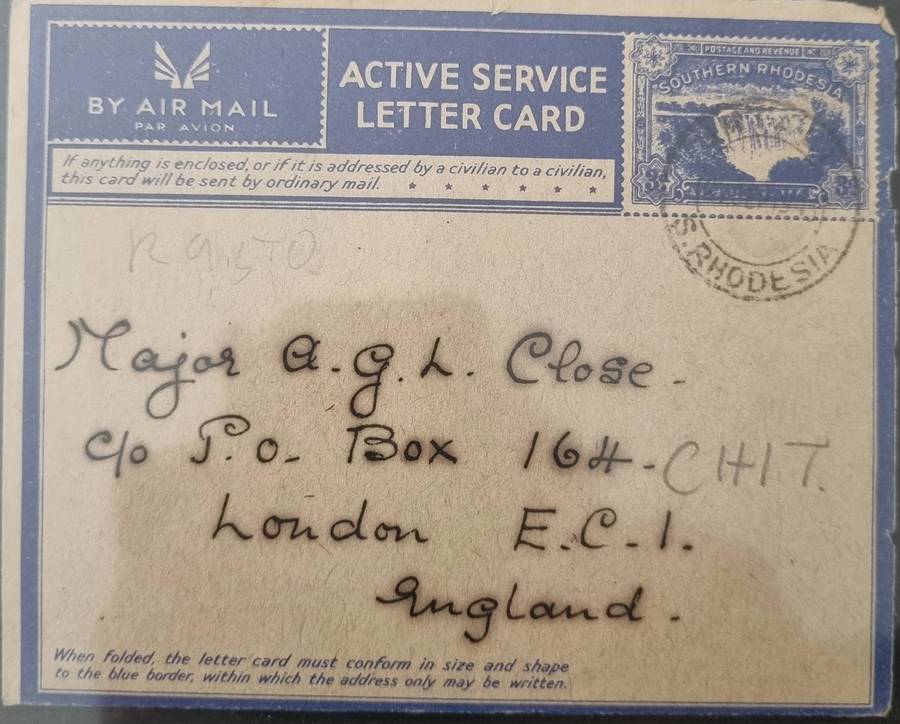 BY AIR MAIL
PAR AVION
ACTIVE SERVICE
LETTER CARD
POSTAGE AND REVENUE
SOUTHERN RHODESIA
3d 3d
If anything is enclosed, or if it is addressed by a civilian to a civilian,
this card will be sent by ordinary mail. * * * * * *
S. RHODESIA
Major A.G.L. Close.
c/o P.O. Box 164. CHIT.
London E.C.1.
England.
When folded, the letter card must conform in size and shape
to the blue border, within which the address only may be written.